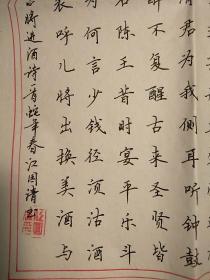 请君为我侧耳听钟鼓
醉不复醒古来圣贤皆
名陈王昔时宴平乐斗
为何言少钱径须沽酒
裘呼儿将出换美酒与
将进酒诗首蛇年春江国清书